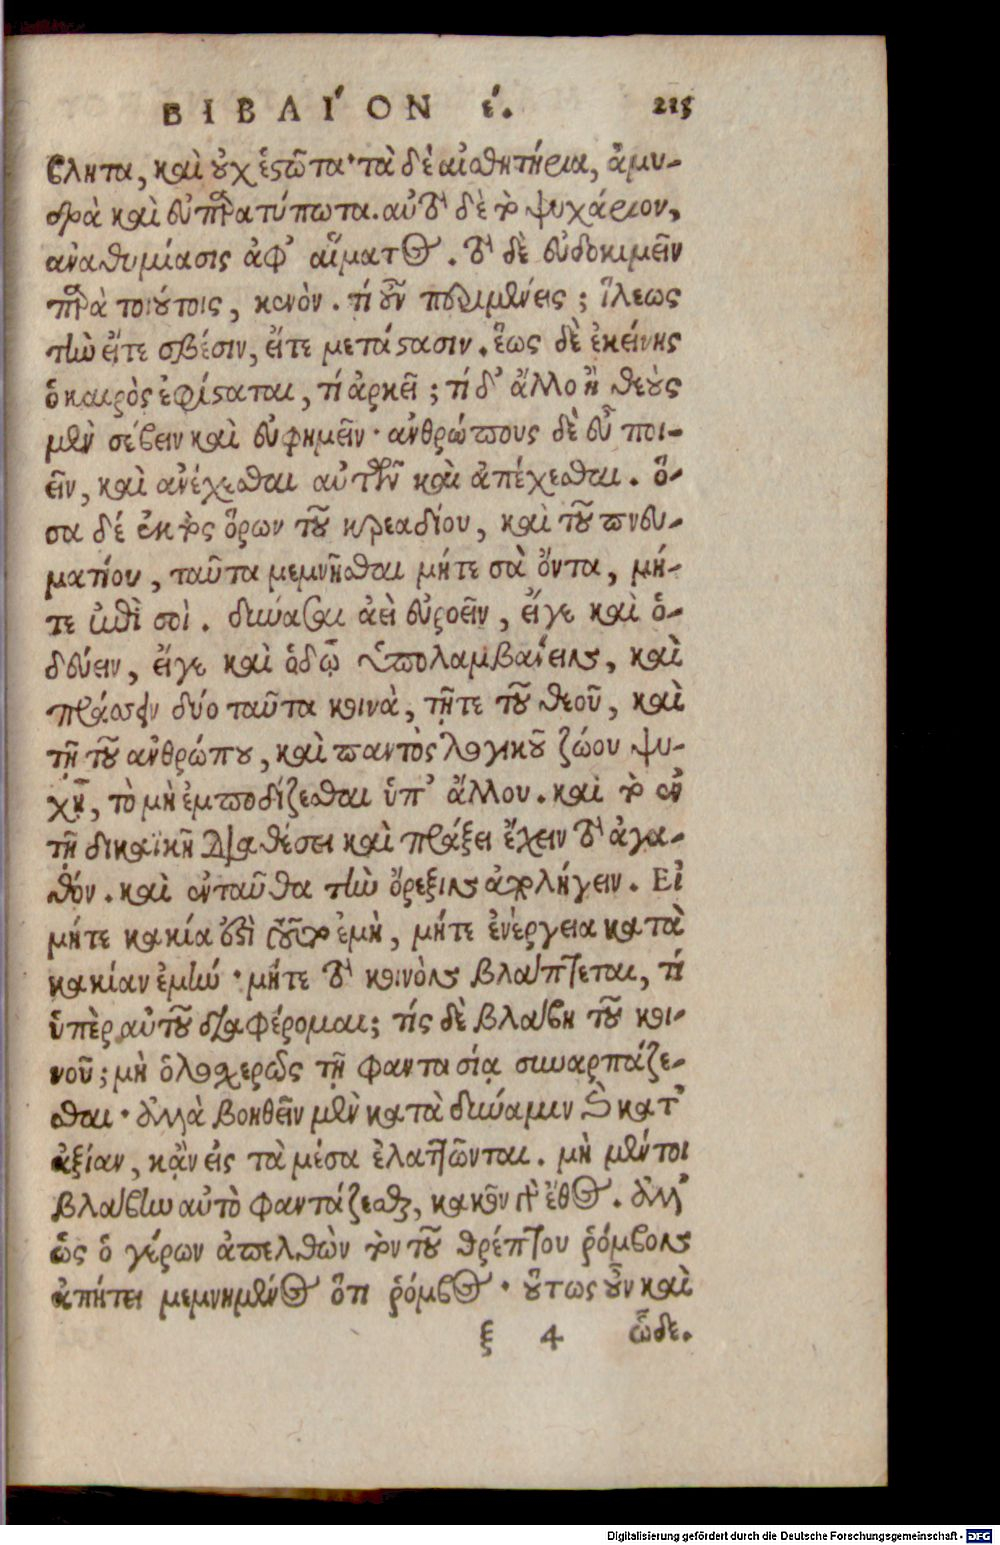 ΒΙΒΛΙ´ΟΝ έ. 215
βλητα, καὶ οὐχ ἑστῶτα· τὰ δὲ αἰσθητήρια, ἀμυ-
δρὰ καὶ εὐπαρατύπωτα. αὐτὸ δὲ τὸ ψυχάριον,
ἀναθυμίασις ἀφ' αἵματος. τὸ δὲ εὐδοκιμεῖν
παρὰ τοιούτοις, κενὸν. τί οὖν περιμένεις; ἵλεως
τὴν εἴτε σβέσιν, εἴτε μετάστασιν. ἕως δὲ ἐκείνης
ὁ καιρὸς ἐφίσταται, τί ἀρκεῖ; τί δ' ἄλλο ἢ θεοὺς
μὲν σέβειν καὶ εὐφημεῖν· ἀνθρώπους δὲ εὖ ποι-
εῖν, καὶ ἀνέχεσθαι αὐτῶν καὶ ἀπέχεσθαι. ὅ-
σα δέ ἐκτὸς ὅρων τοῦ κρεαδίου, καὶ τοῦ πνευ-
ματίου, ταῦτα μεμνῆσθαι μήτε σὰ ὄντα, μή-
τε ἐπὶ σοὶ. δύνασαι ἀεὶ εὐροεῖν, εἴγε καὶ ὁ-
δεύειν, εἴγε καὶ ὁδῷ ὑπολαμβάνειν, καὶ
πράσσειν δύο ταῦτα κοινὰ, τῇτε τοῦ θεοῦ, καὶ
τῇ τοῦ ἀνθρώπου, καὶ παντὸς λογικοῦ ζώου ψυ-
χῇ, τὸ μὴ ἐμποδίζεσθαι ὑπ' ἄλλου. καὶ τὸ ἐν
τῇ δικαϊκῇ διαθέσει καὶ πράξει ἔχειν τὸ ἀγα-
θόν. καὶ ἐνταῦθα τὴν ὄρεξιν ἀπολήγειν. Εἰ
μήτε κακία ἐστὶ τοῦτο ἐμὴ, μήτε ἐνέργεια κατὰ
κακίαν ἐμὴν· μήτε τὸ κοινὸν βλάπτεται, τί
ὑπὲρ αὐτοῦ διαφέρομαι; τίς δὲ βλάβη τοῦ κοι-
νοῦ; μὴ ὁλοχερῶς τῇ φαντασίᾳ συναρπάζε-
σθαι· ἀλλὰ βοηθεῖν μὲν κατὰ δύναμιν καὶ κατ'
ἀξίαν, κἂν εἰς τὰ μέσα ἐλαττῶνται. μὴ μέντοι
βλάβην αὐτὸ φαντάζεσθαι, κακὸν γὰρ ἔθος. ἀλλ'
ὡς ὁ γέρων ἀπελθὼν τὸν τοῦ θρέπτου ῥόμβον
ἀπῄτει μεμνημένος ὅτι ῥόμβος· οὕτως οὖν καὶ
ξ 4 ὧδε.
Digitalisierung gefördert durch die Deutsche Forschungsgemeinschaft - DFG